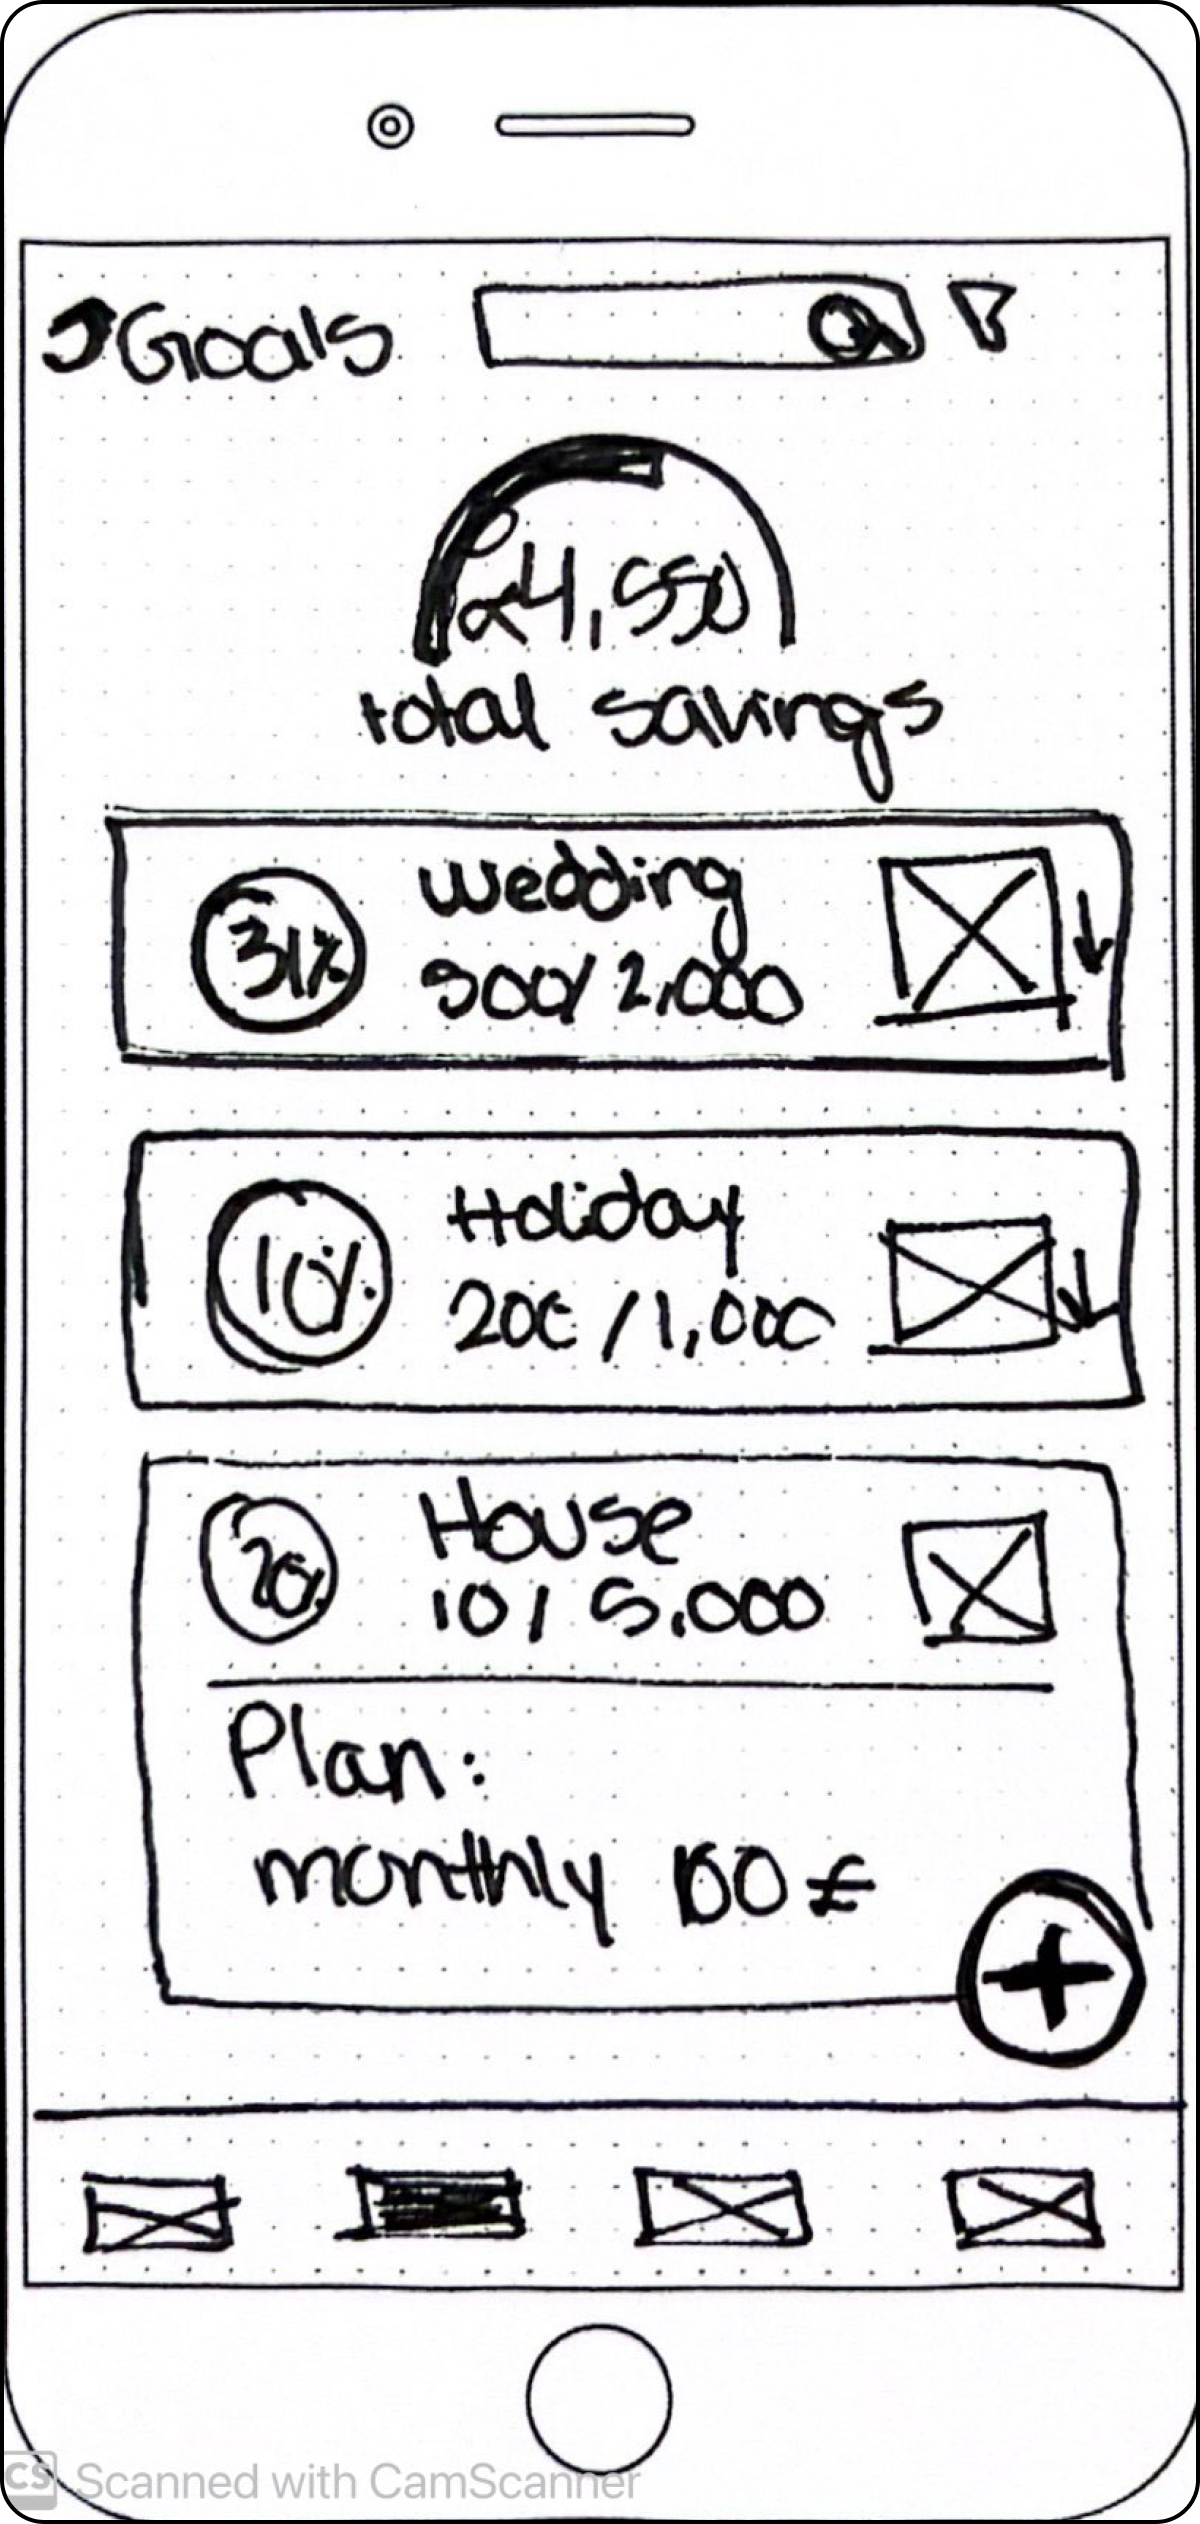 Goals
£4,550
total savings
31%
Wedding
500/2,000
10%
Holiday
200/1,000
20%
House
10/5,000
Plan:
monthly 100 £
+
CS Scanned with CamScanner